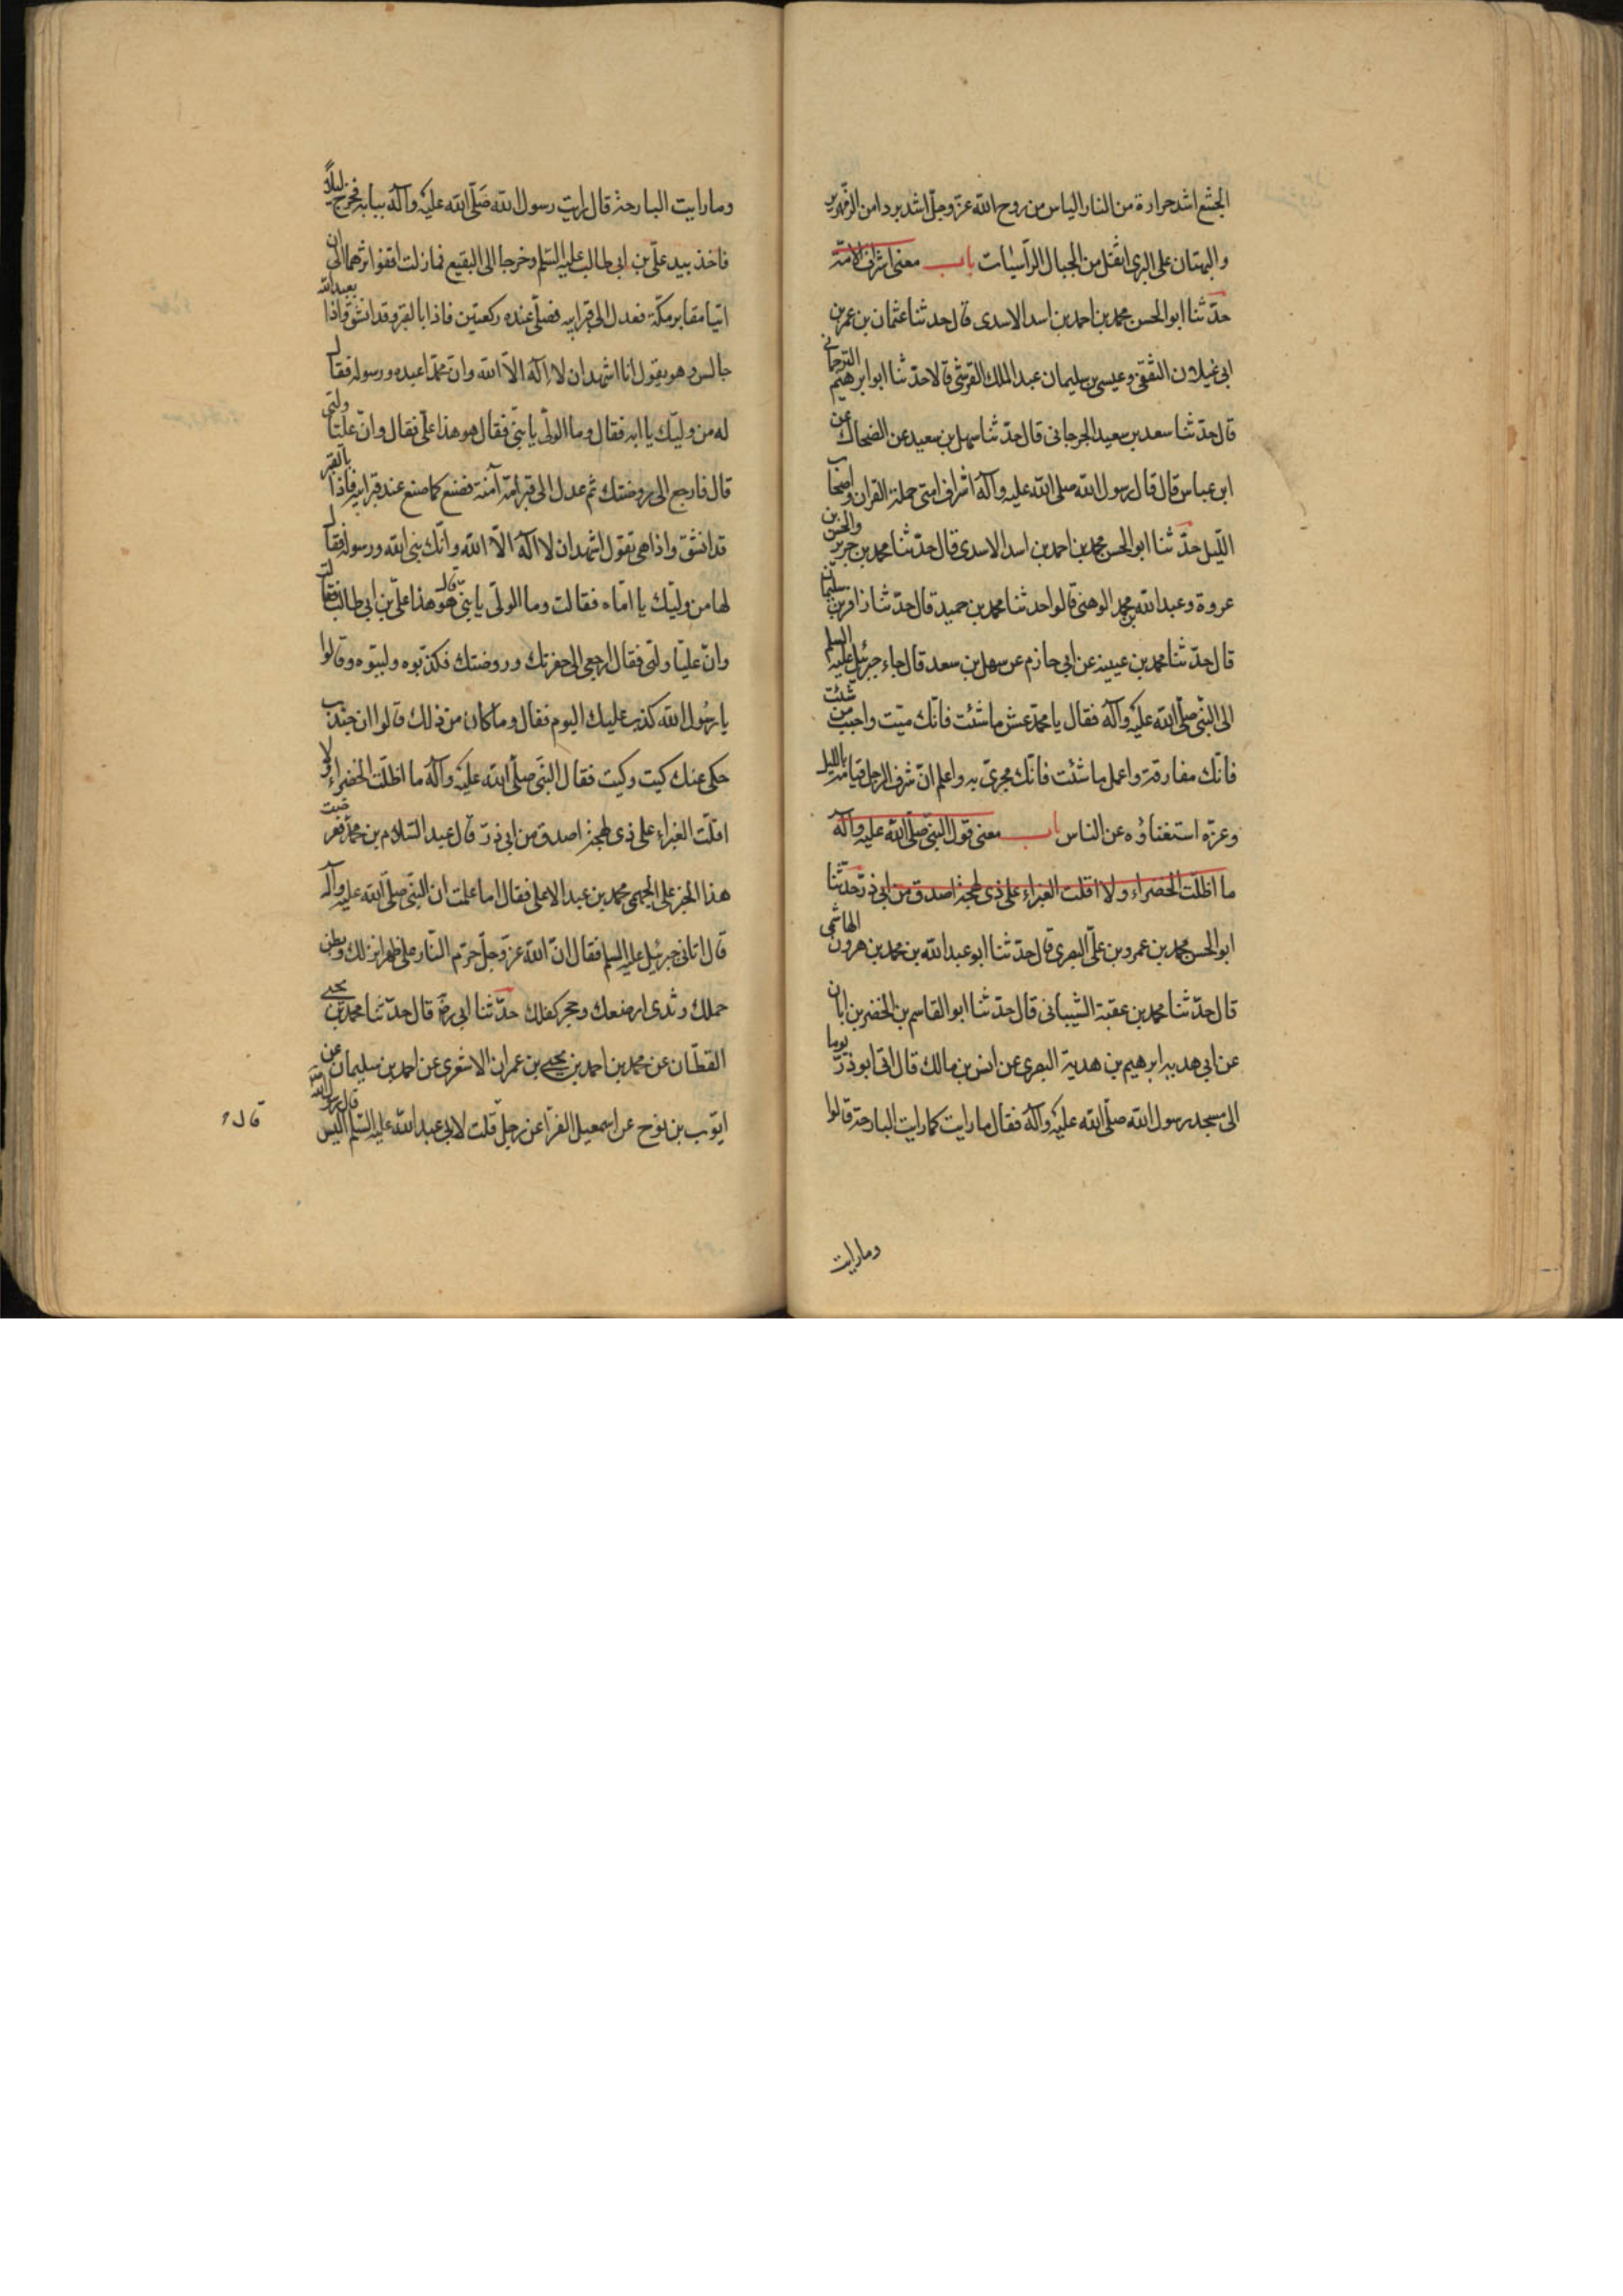 الجشع اشد حرارة من النار الياس من روح الله عزّ وجلّ اشد بردا من الزمهرير
والبهتان على البرى اثقل من الجبال الرّاسيات باب معنى اشراف الامّة
حدّثنا ابو الحسن محمد بن احمد بن اسد الاسدى قال حدثنا عثمان بن عمر بن
ابى غيلان الثقفى وعيسى بن سليمان عبد الملك القرشى قالا حدّثنا ابو ابرهيم الترجمانى
قال حدّثنا سعد بن سعيد الجرجانى قال حدّثنا نهشل بن سعيد عن الضحاك عن
ابن عباس قال قال رسول الله صلى الله عليه وآله اشراف امتى حملة القران واصحاب
اللّيل حدّثنا ابو الحسن محمد بن احمد بن اسد الاسدى قال حدّثنا محمد بن جرير والحسن بن
عروة وعبد الله بن محمد الوهبى قالوا حدثنا محمد بن حميد قال حدّثنا زافر بن سليمان
قال حدّثنا محمد بن عيينه عن ابى حازم عن سهل بن سعد قال جاء جبرئيل عليه السلم
الى النّبى صلّى الله عليه وآله فقال يا محمّد عش ما شئت فانّك ميّت واحبب من شئت
فانّك مفارقه واعمل ما شئت فانّك مجزىّ به واعلم انّ شرف الرجل قيامه بالليل
وعزّه استغناؤه عن الناس باب معنى قول النبىّ صلّى الله عليه وآله
ما اظلّت الخضراء ولا اقلت الغبراء على ذى لهجة اصدق من ابى ذرّ حدّثنا
ابو الحسن محمد بن عمرو بن علىّ البصرى قال حدّثنا ابو عبد الله بن محمد بن هرون الهاشمى
قال حدّثنا محمد بن عقبة الشّيبانى قال حدّثنا ابو القاسم بن الخضر بن ابان
عن ابى هدبه ابرهيم بن هدبة البصرى عن انس بن مالك قال اتى ابو ذرّ يوما
الى مسجد رسول الله صلّى الله عليه وآله فقال ما رايت كما رايت البارحة قالوا
وما رايت
وما رايت البارحة قال رايت رسول الله صلّى الله عليه وآله ببابه فخرج ليلاً
فاخذ بيد علىّ بن ابى طالب عليه السّلم وخرجا الى البقيع فما زلت اقفوا اثرهما الى ان
اتيا مقابر مكّة فعدل الى قبر ابيه فصلّى عنده ركعتين فاذا بالقبر وقد انشق واذا بعبد الله
جالس وهو يقول انا اشهد ان لا اله الّا الله وانّ محمّدا عبده ورسوله فقال
له من وليّك يا ابه فقال وما الولّى يا بنّى فقال هو هذا علّى فقال وانّ عليّا ولّيى
قال فارجع الى روضتك ثم عدل الى قبر امّه آمنة فصنع كما صنع عند قبر ابيه فاذا بالقبر
قد انشق واذا هى تقول اشهد ان لا اله الّا الله وانّك نبى الله ورسوله فقال
لها من وليّك يا امّاه فقالت وما الولّى يا بنّى قال هو هذا علىّ بن ابى طالب فقالت
وانّ عليّا ولّيى فقال ارجعى الى حفرتك وروضتك فكذّبوه ولببّوه وقالوا
يا رسُول الله كذب عليك اليوم فقال وما كان من ذلك قالوا ان جندب
حكى عنك كيت وكيت فقال النّبى صلّى الله عليه وآله ما اظلّت الخضراء ولا
اقلّت الغبراء على ذى لهجة اصدق من ابى ذرّ قال عبد السّلام بن محمّد فعرضت
هذا الخبر على الجهمى محمد بن عبد الاعلى فقال اما علمت ان النّبى صلّى الله عليه وآله
قال اتانى جبرئيل عليه السلم فقال انّ الله عزّ وجلّ حرّم النّار على ظهر انزلك وبطن
حملك وثدى ارضعك وحجر كفلك حدّثنا ابى رض قال حدّثنا محمد بن يحيى
القطّان عن محمد بن احمد بن يحيى بن عمران الاشعرى عن احمد بن سليمان عن
ايّوب بن نوح عن اسمعيل الفرّا عن رجل قلت لابى عبد الله عليه السّلم اليس قال رسول الله
قال